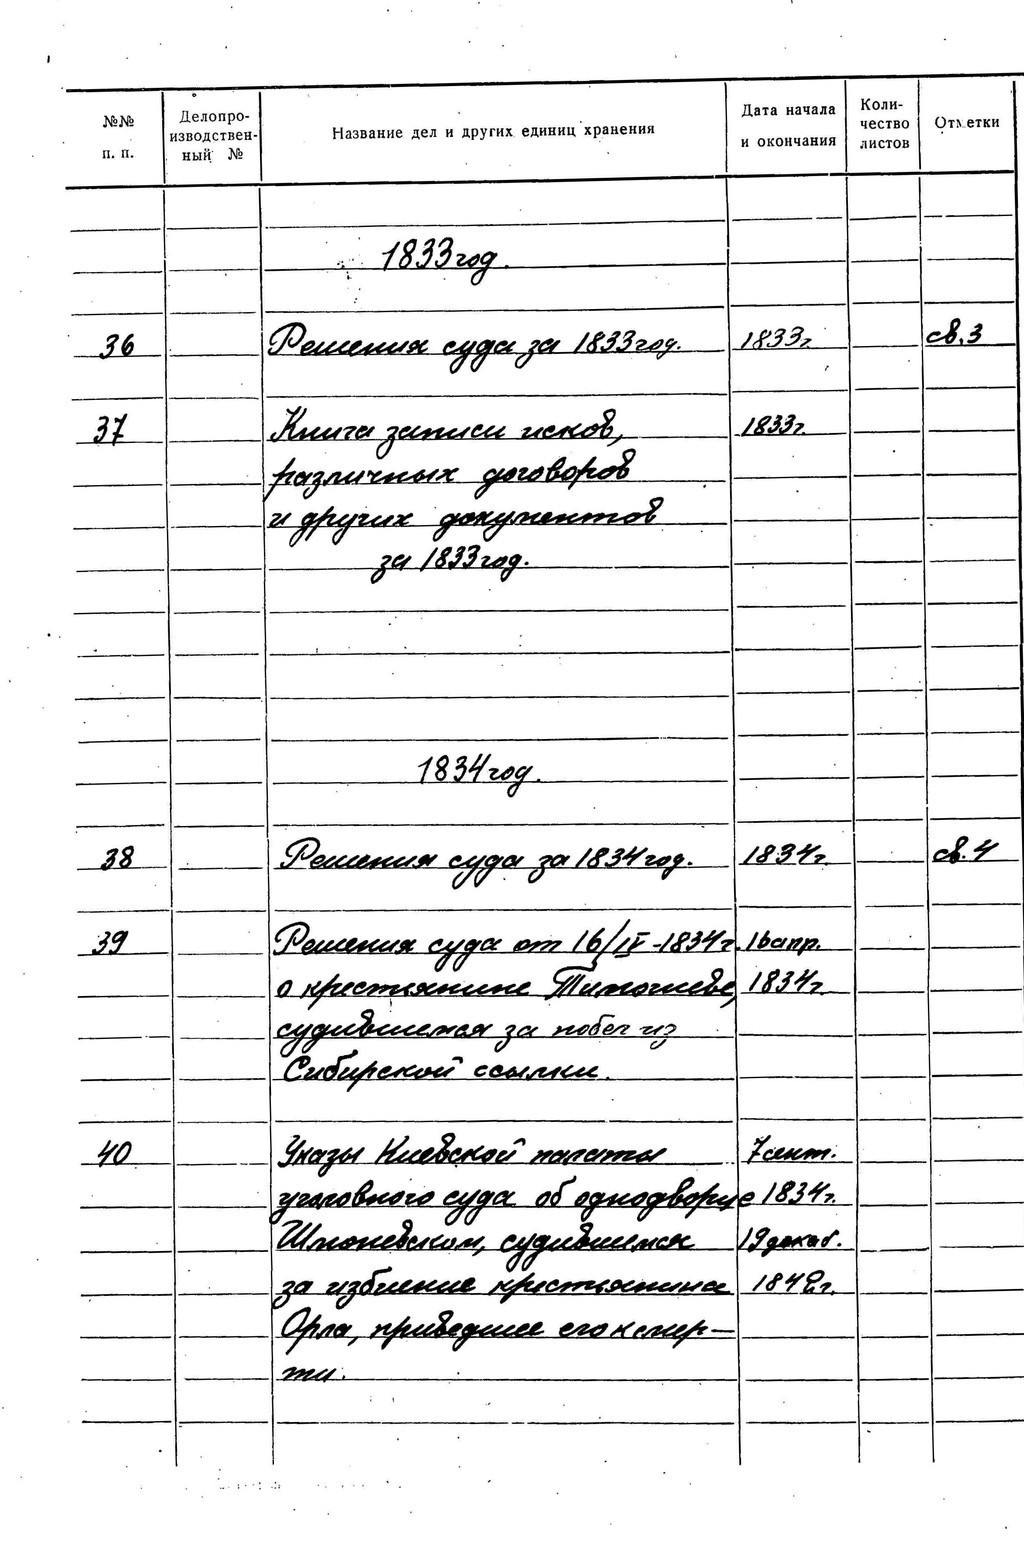 №№ п. п.
Делопроизводственный №
Название дел и других единиц хранения
Дата начала и окончания
Количество листов
Отметки
1833 год.
36 Решения суда за 1833 год. 1833 г. св. 3
37 Книга записи исков, 1833 г.
различных договоров
и других документов
за 1833 год.
1834 год.
38 Решения суда за 1834 год. 1834 г. св. 4
39 Решения суда от 16/IV-1834 г. 16 апр.
о крестьянине Тимочневе, 1834 г.
судившемся за побег из
Сибирской ссылки.
40 Указы Киевской палаты 7 сент.
уголовного суда об однодворце 1834 г.
Шпоневском, судившемся 19 декаб.
за избиение крестьянина 1842 г.
Орла, приведшее его к смер-
ти.